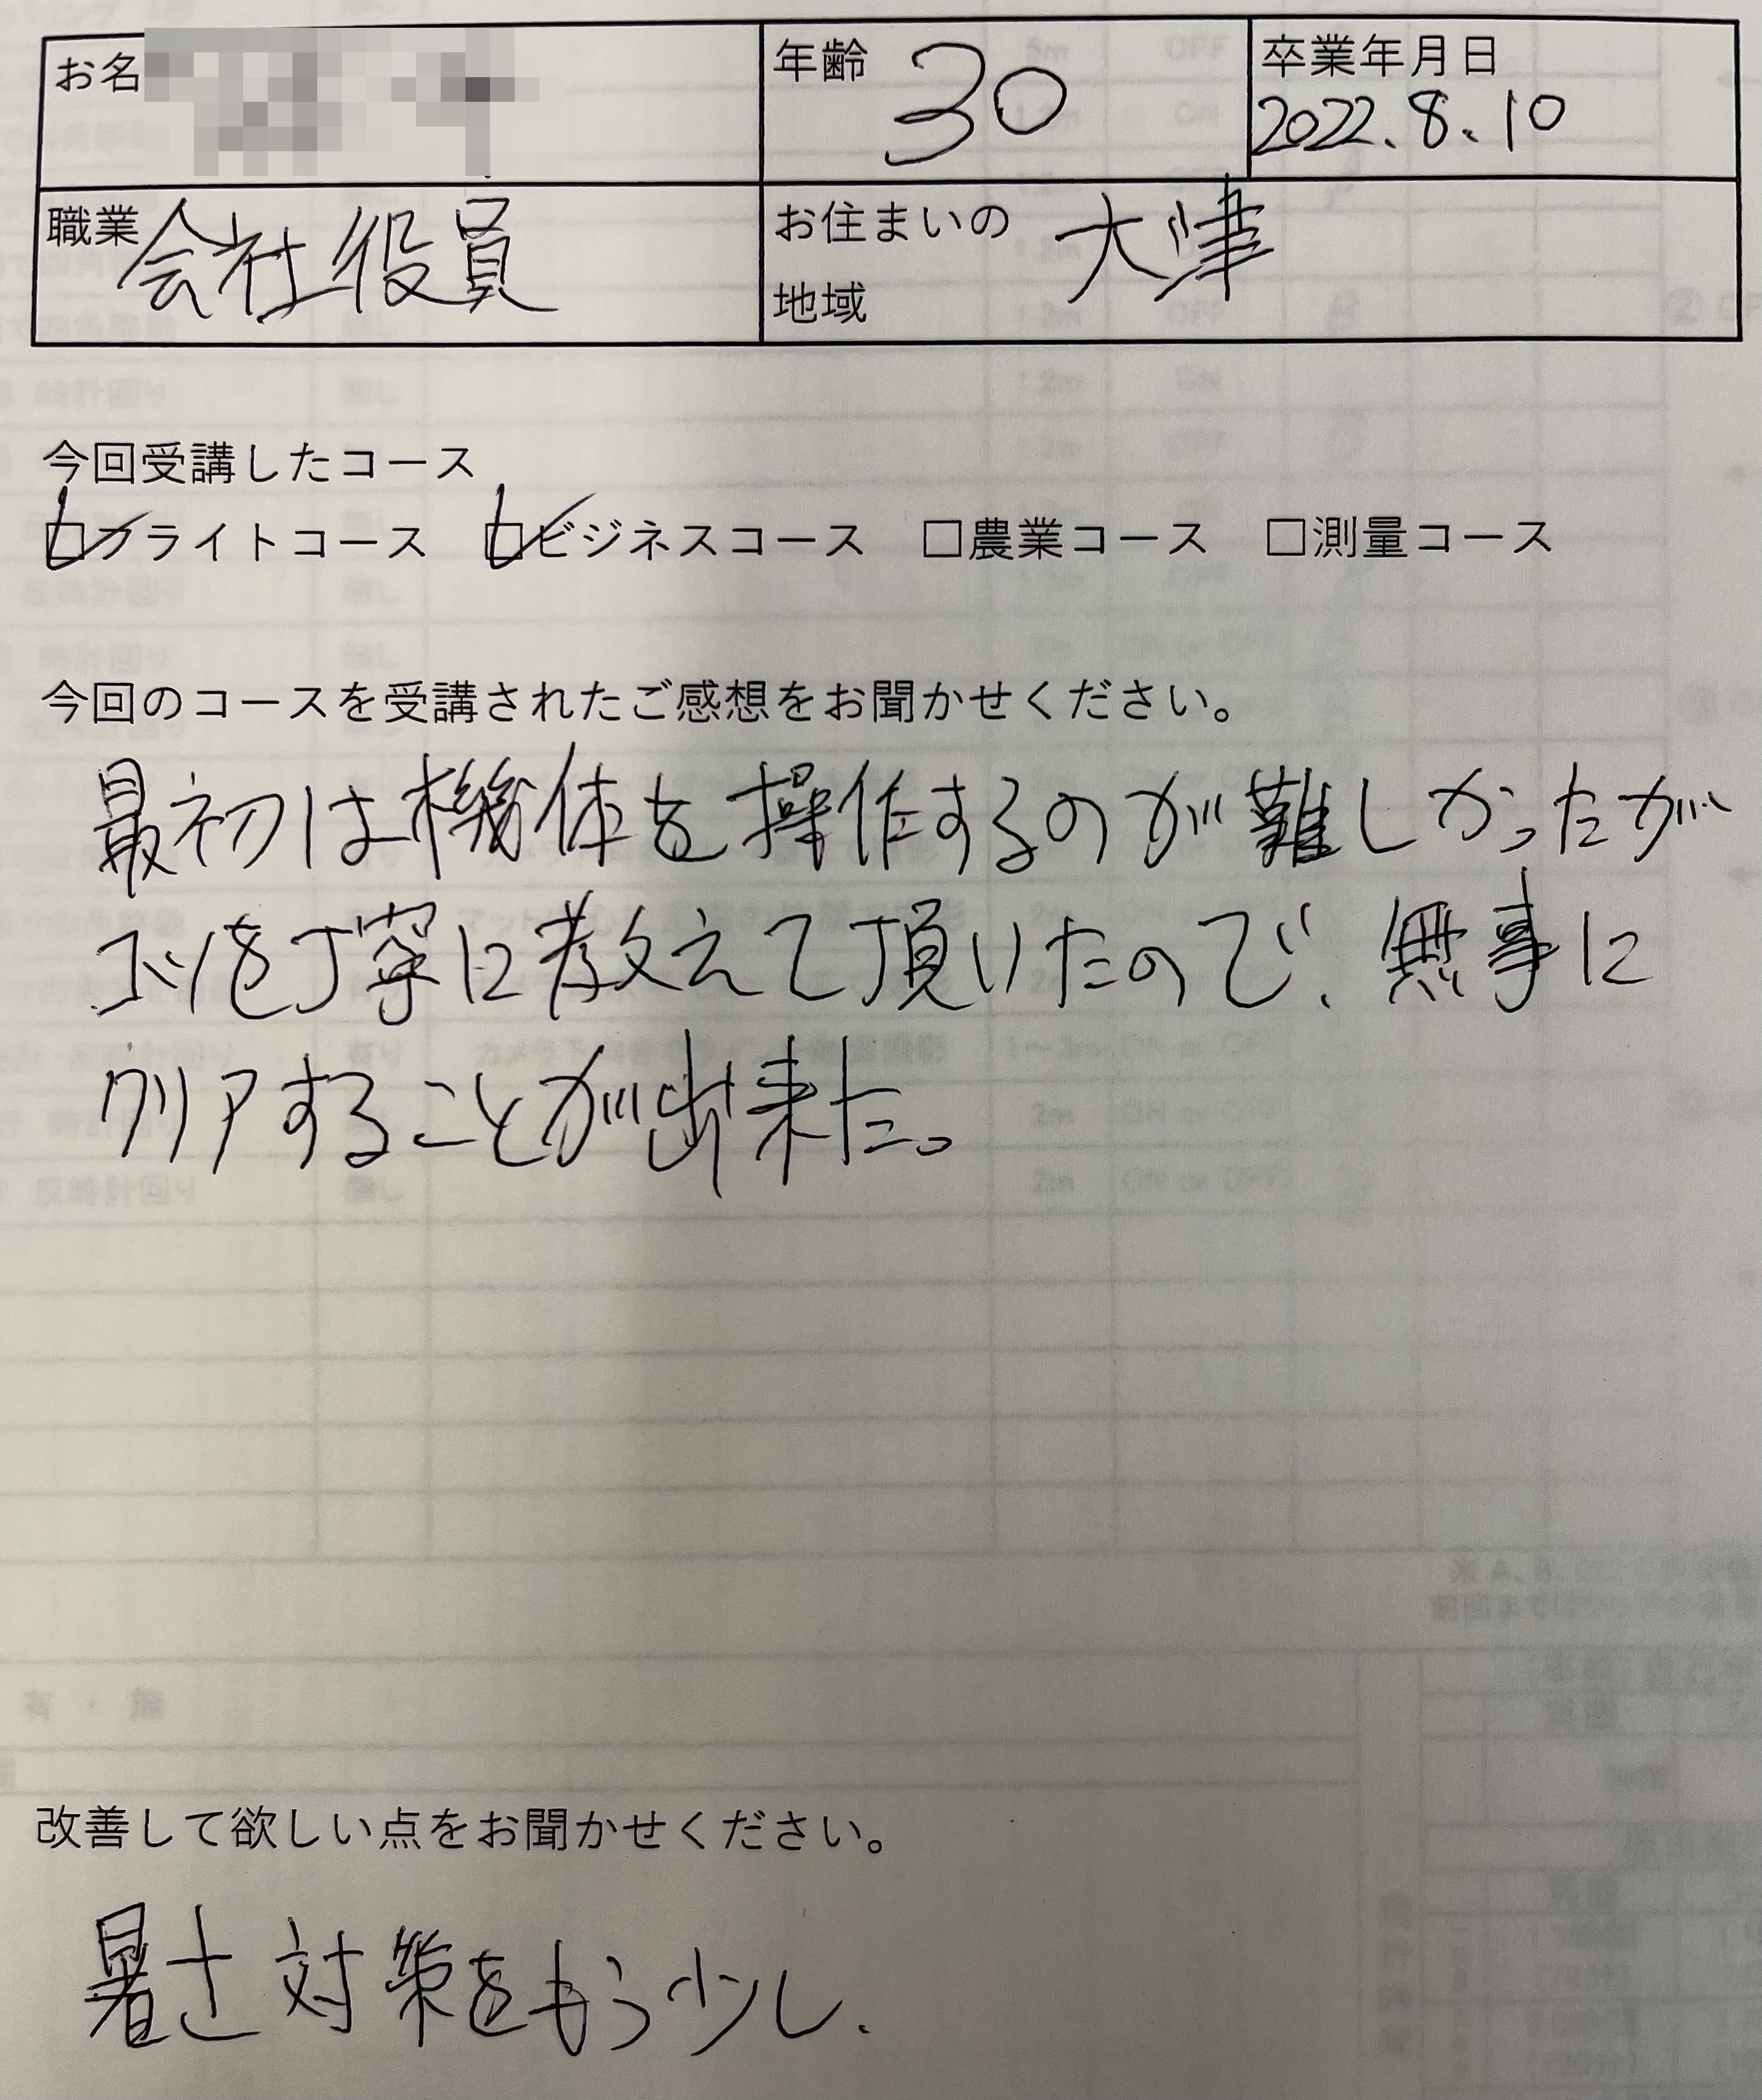 お名
年齢 30
卒業年月日
2022.8.10
職業 会社役員
お住まいの
地域 大津
今回受講したコース
☑フライトコース ☑ビジネスコース □農業コース □測量コース
今回のコースを受講されたご感想をお聞かせください。
最初は機体を操作するのが難しかったが
コツを丁寧に教えて頂いたので、無事に
クリアすることが出来た。
改善して欲しい点をお聞かせください。
暑さ対策をもう少し、